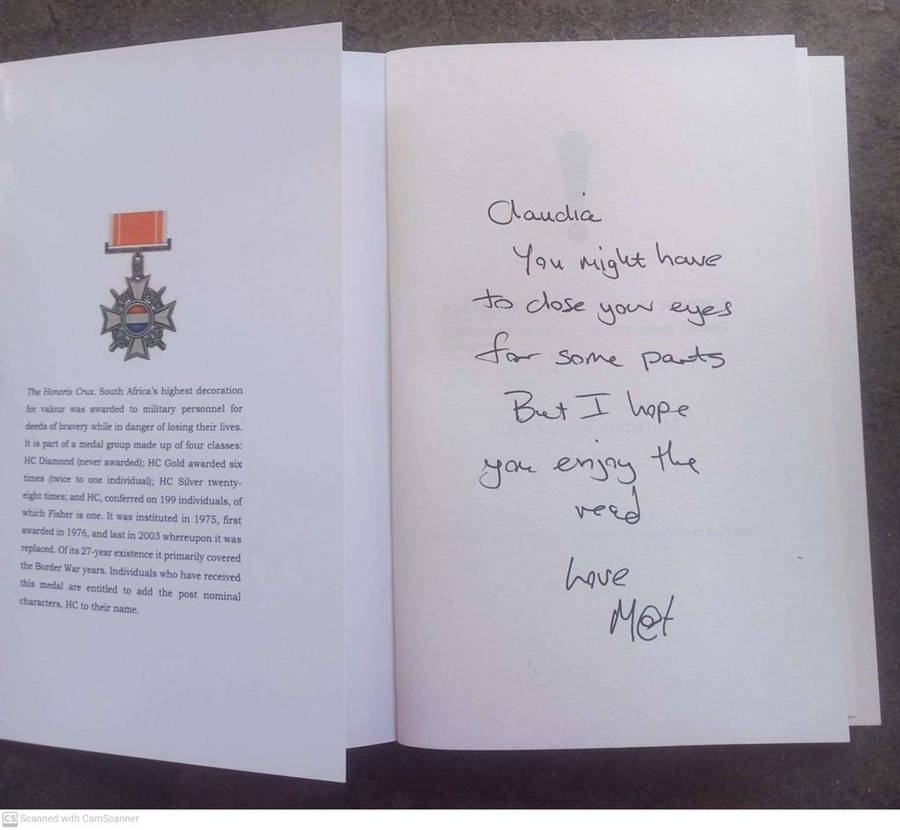 The Honoris Crux. South Africa's highest decoration
for valour was awarded to military personnel for
deeds of bravery while in danger of losing their lives.
It is part of a medal group made up of four classes:
HC Diamond (never awarded); HC Gold awarded six
times (twice to one individual); HC Silver twenty-
eight times; and HC, conferred on 199 individuals, of
which Fisher is one. It was instituted in 1975, first
awarded in 1976, and last in 2003 whereupon it was
replaced. Of its 27-year existence it primarily covered
the Border War years. Individuals who have received
this medal are entitled to add the post nominal
characters, HC to their name.
Claudia
You might have
to close your eyes
for some parts
But I hope
you enjoy the
read
Love
M@t
CS Scanned with CamScanner